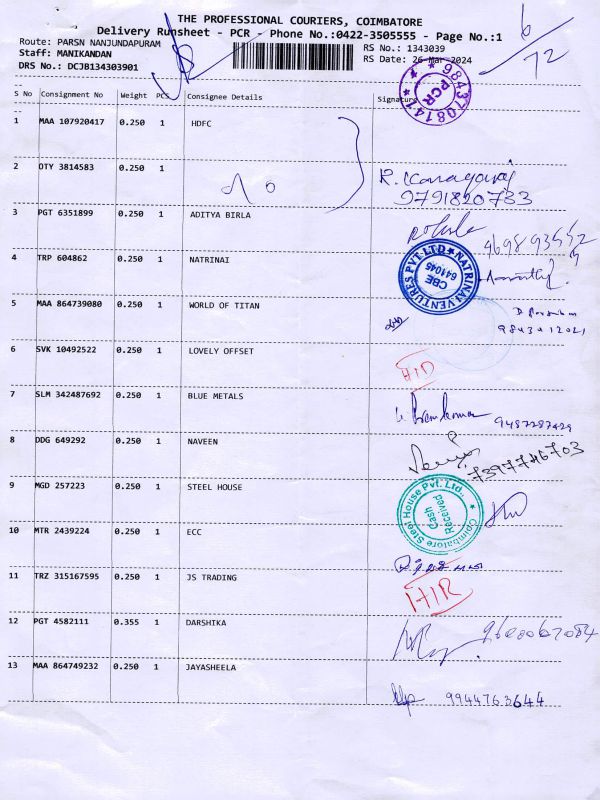 THE PROFESSIONAL COURIERS, COIMBATORE
Delivery Runsheet - PCR - Phone No.:0422-3505555 - Page No.:1
Route: PARSN NANJUNDAPURAM
Staff: MANIKANDAN
DRS No.: DCJB134303901
RS No.: 1343039
RS Date: 26-Mar-2024
6
72
PCR
9843708141
S No Consignment No Weight PCS Consignee Details Signature
1 MAA 107920417 0.250 1 HDFC
2 OTY 3814583 0.250 1
R.
9791820733
3 PGT 6351899 0.250 1 ADITYA BIRLA
4 TRP 604862 0.250 1 NATRINAI
NATRINAI VENTURES PVT.LTD
CBE
641045
5 MAA 864739080 0.250 1 WORLD OF TITAN
6 SVK 10492522 0.250 1 LOVELY OFFSET
7 SLM 342487692 0.250 1 BLUE METALS
9487287429
8 DDG 649292 0.250 1 NAVEEN
7397746703
9 MGD 257223 0.250 1 STEEL HOUSE
Coimbatore Steel House Pvt. Ltd.,
Cash
Received
10 MTR 2439224 0.250 1 ECC
11 TRZ 315167595 0.250 1 JS TRADING
12 PGT 4582111 0.355 1 DARSHIKA
9600062084
13 MAA 864749232 0.250 1 JAYASHEELA
9944763644